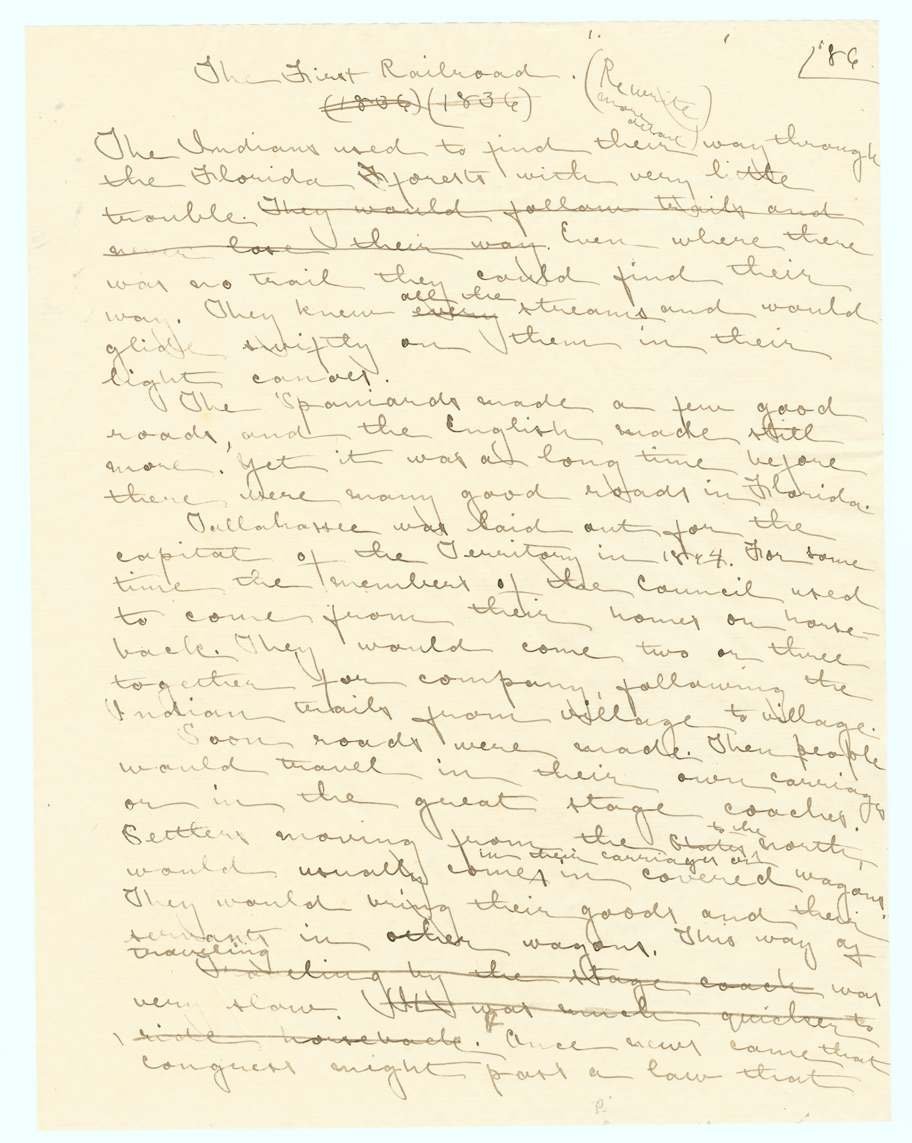 186
The First Railroad. (Rewrite
more
detail)
(1836) (1836)
The Indians used to find their way through
the Florida forests with very little
trouble. They would follow trails and
never lose their way. Even where there
was no trail they could find their
all the
way. They knew every streams and would
glide swiftly on them in their
light canoes.
The Spaniards made a few good
roads, and the English made still
more. Yet it was a long time before
there were many good roads in Florida.
Tallahassee was laid out for the
capital of the Territory in 1824. For some
time the members of the Council used
to come from their homes on horse-
back. They would come two or three
together for company, following the
Indian trails from village to village.
Soon roads were made. Then people
would travel in their own carriages
or in the great stage coaches.
to the
Settlers moving from the States north,
in their carriages or
would usually come in covered wagons.
They would bring their goods and their
servants in other wagons. This way of
traveling
Traveling by the stage coach was
very slow. It was much quicker to
ride horseback. Once news came that
congress might pass a law that